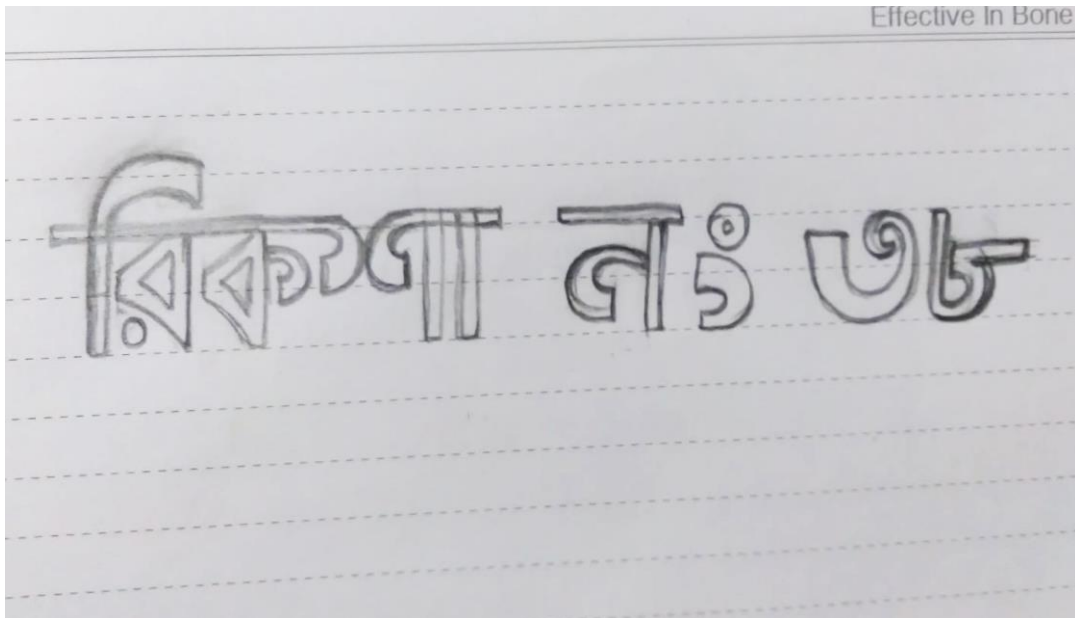 Effective In Bone
রিকশা নং ৩৮